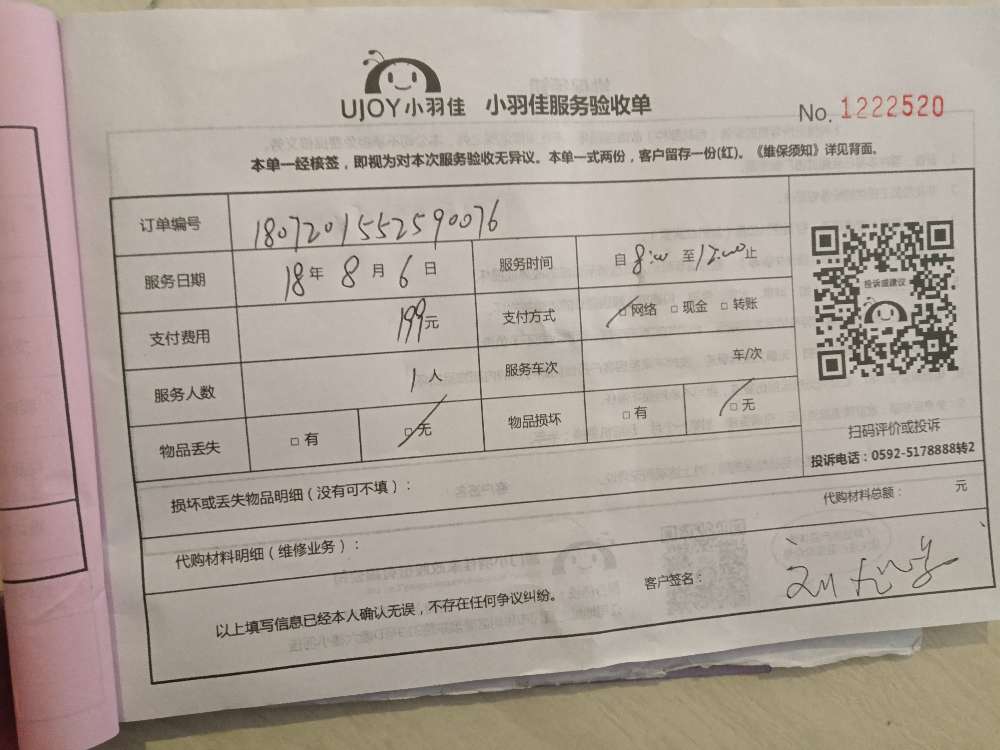 UJOY小羽佳 小羽佳服务验收单
No. 1222520
本单一经核签，即视为对本次服务验收无异议。本单一式两份，客户留存一份(红)。《維保须知》详见背面。
订单编号 1807201552590076
服务日期 18年 8月 6日 服务时间 自 8:00 至 12:00 止
支付费用 199元 支付方式 □网络 □现金 □转账
服务人数 1人 服务车次 车/次
物品丢失 □有 □无 物品损坏 □有 □无
投诉或建议
扫码评价或投诉
投诉电话：0592-5178888转2
损坏或丢失物品明细（没有可不填）：
代购材料总额： 元
代购材料明细（维修业务）：
客户签名：
以上填写信息已经本人确认无误，不存在任何争议纠纷。